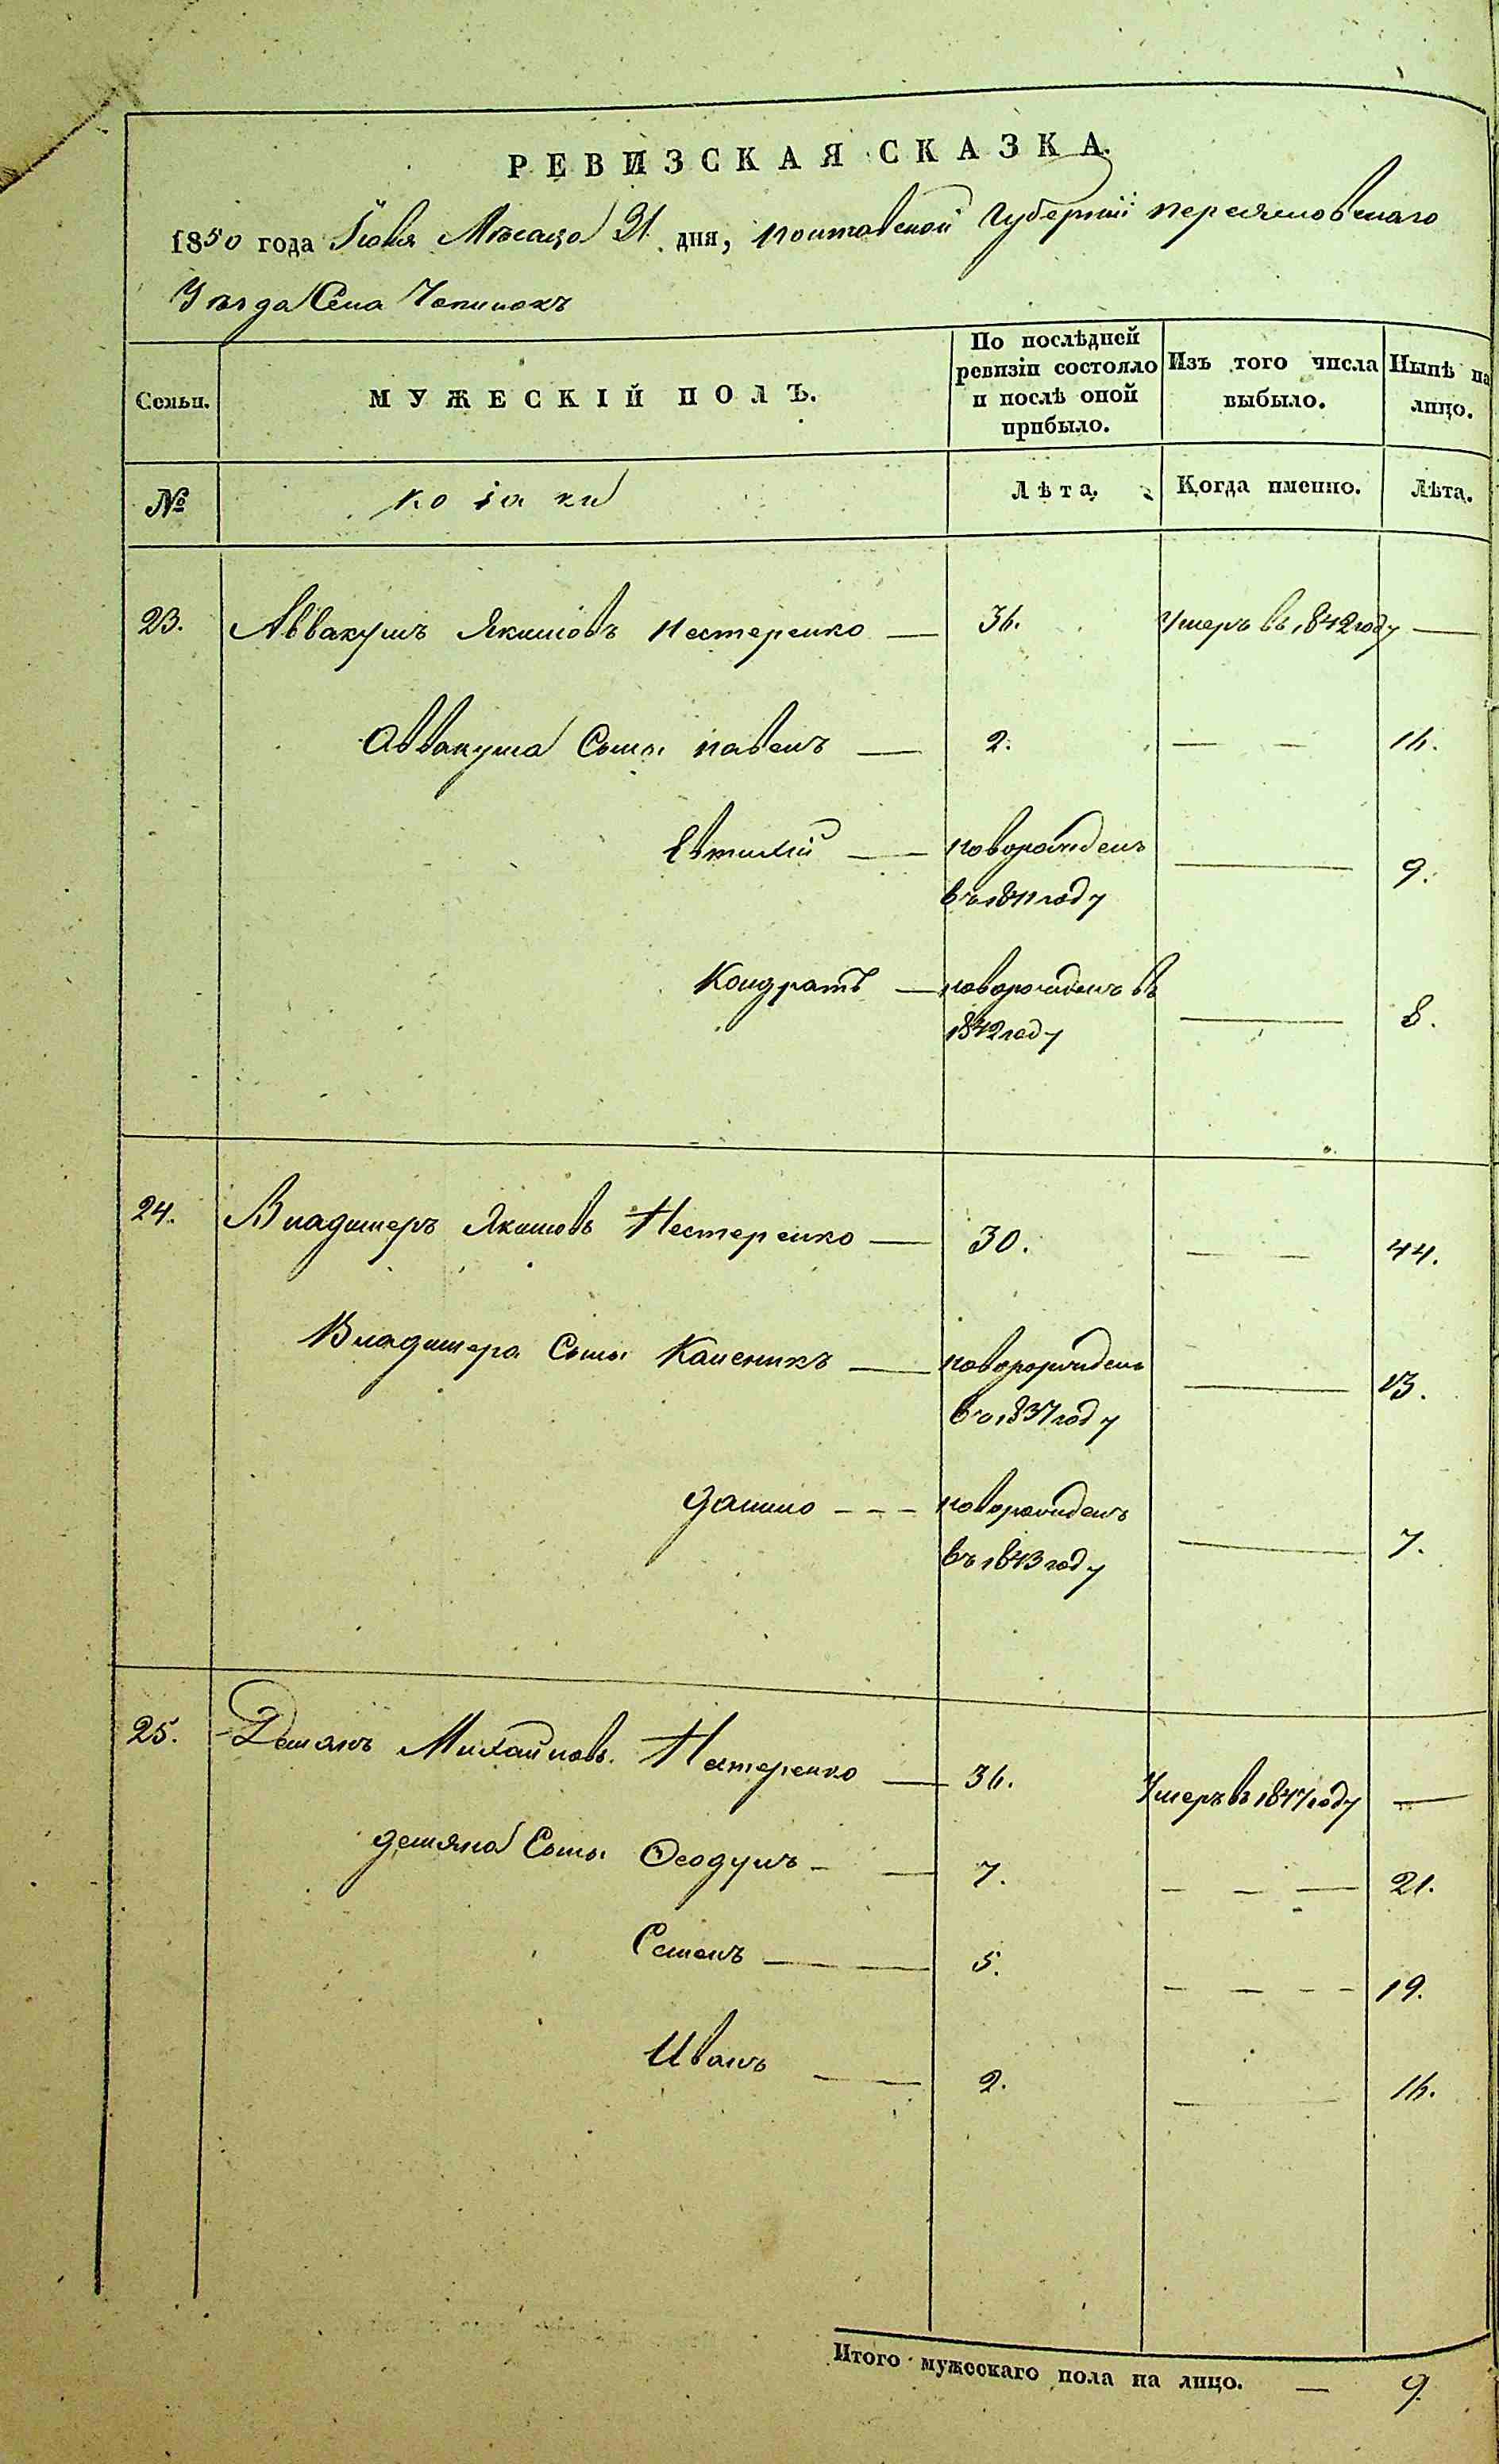 РЕВИЗСКАЯ СКАЗКА.
1850 года Іюля Месяца 31 дня, Полтавской Губерніи Переяславскаго
Уѣзда Села Чопилокъ
Семьи.
МУЖЕСКІЙ ПОЛЪ.
По послѣдней ревизіи состояло и послѣ оной прибыло.
Изъ того числа выбыло.
Нынѣ на лицо.
№
козаки
Лѣта.
Когда именно.
Лѣта.
23. Аввакумъ Якимовъ Нестеренко — 36. Умеръ въ 1842 году —
Аввакума Сыны Павелъ — 2. — — 16.
Евтихій — новорожденъ
въ 1841 году — 9.
Кондратъ — новорожденъ въ
1842 году — 8.
24. Владимеръ Якимовъ Нестеренко — 30. — — 44.
Владимера Сыны Каленикъ — новорожденъ
въ 1837 году — 13.
Данило - - - новорожденъ
въ 1843 году — 7.
25. Демянъ Михайловъ Нестеренко — 36. Умеръ въ 1847 году —
Демяна Сыны Ѳеодулъ - — 7. - - — 21.
Семенъ — — 5. - - - - 19.
Иванъ — 2. — 16.
Итого мужескаго пола на лицо. — 9